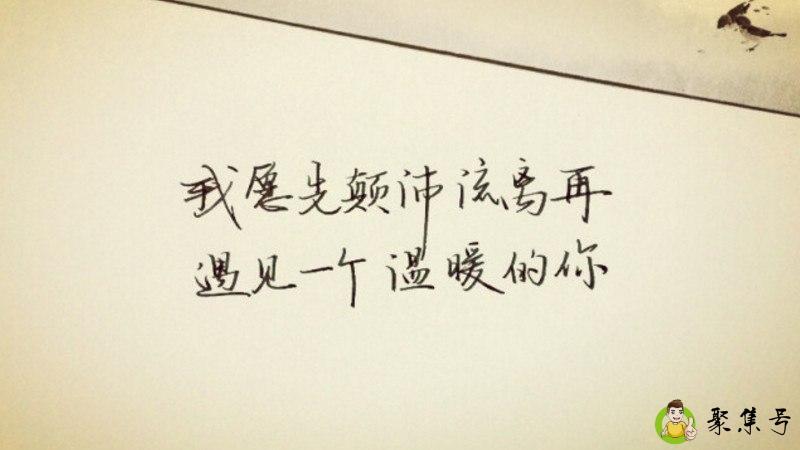 我愿先颠沛流离再
遇见一个温暖的你
聚集号